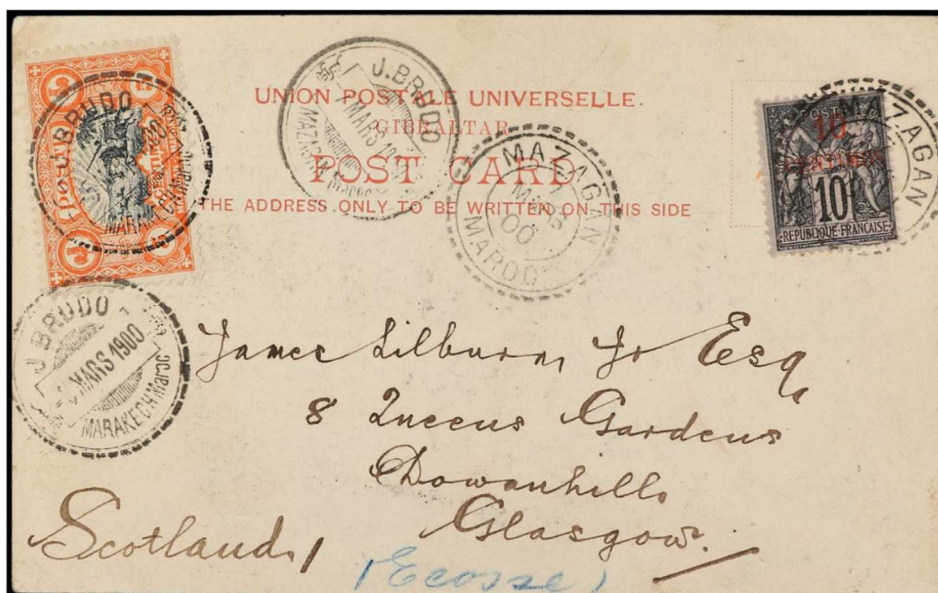 UNION POSTALE UNIVERSELLE.
GIBRALTAR
POST CARD
THE ADDRESS ONLY TO BE WRITTEN ON THIS SIDE
J. BRUDO
J. BRUDO
MARS
MAZAGAN
MARS
00
MAROC
MAZAGAN
10
CENTIMOS
10
REPUBLIQUE FRANÇAISE
J. BRUDO
MARS 1900
MARAKECH Maroc
James Lilburn, Jr Esq
8 Queens Gardens
Dowanhill
Glasgow.
Scotland
(Ecosse)